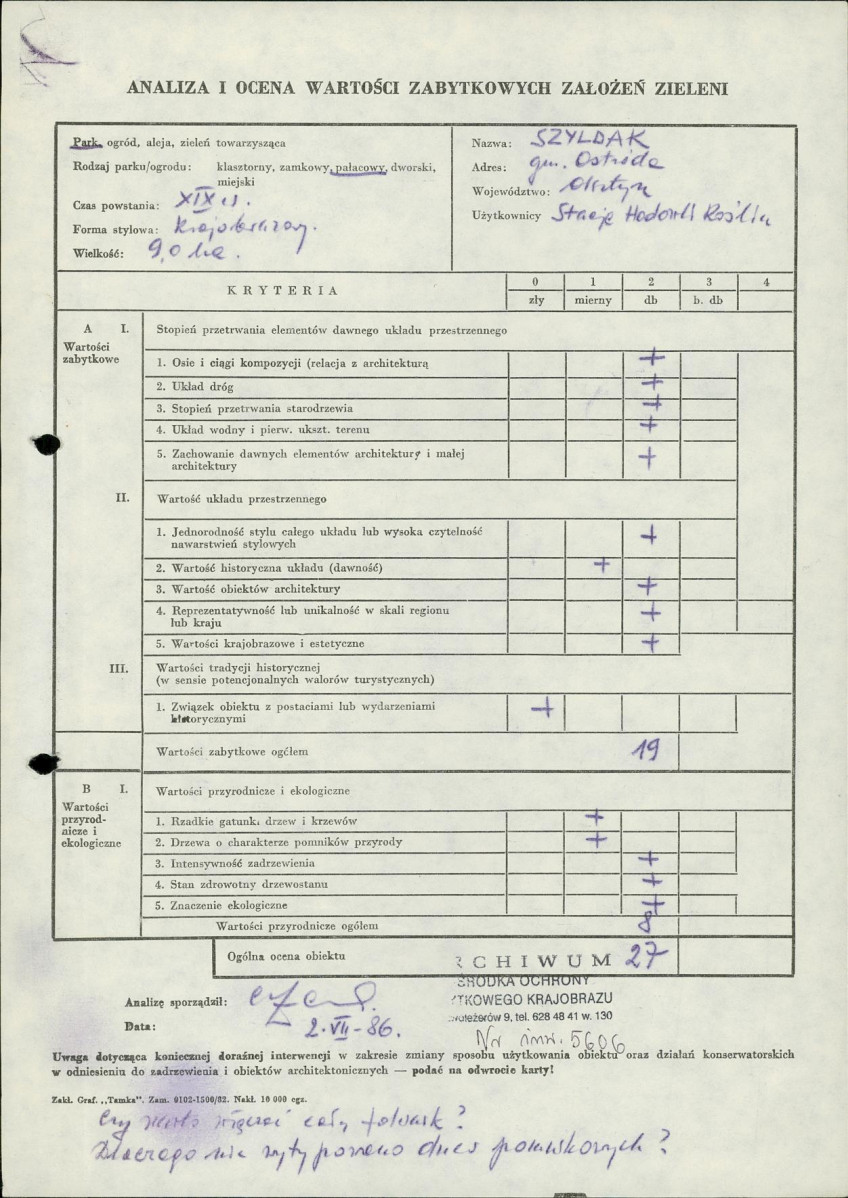 ANALIZA I OCENA WARTOŚCI ZABYTKOWYCH ZAŁOŻEŃ ZIELENI
Park, ogród, aleja, zieleń towarzysząca
Rodzaj parku/ogrodu: klasztorny, zamkowy, pałacowy, dworski,
miejski
Czas powstania: XIX w.
Forma stylowa: Krajobrazowy.
Wielkość: 9,0 ha.
Nazwa: SZYLDAK
Adres: gm. Ostróda
Województwo: Olsztyn
Użytkownicy Stacja Hodowli Roślin
KRYTERIA
0 1 2 3 4
zły mierny db b. db
A I. Stopień przetrwania elementów dawnego układu przestrzennego
Wartości
zabytkowe
1. Osie i ciągi kompozycji (relacja z architekturą +
2. Układ dróg +
3. Stopień przetrwania starodrzewia +
4. Układ wodny i pierw. ukszt. terenu +
5. Zachowanie dawnych elementów architektury i małej
architektury +
II. Wartość układu przestrzennego
1. Jednorodność stylu całego układu lub wysoka czytelność
nawarstwień stylowych +
2. Wartość historyczna układu (dawność) +
3. Wartość obiektów architektury +
4. Reprezentatywność lub unikalność w skali regionu
lub kraju +
5. Wartości krajobrazowe i estetyczne +
III. Wartości tradycji historycznej
(w sensie potencjonalnych walorów turystycznych)
1. Związek obiektu z postaciami lub wydarzeniami
historycznymi +
Wartości zabytkowe ogółem 19
B I. Wartości przyrodnicze i ekologiczne
Wartości
przyrod-
nicze i
ekologiczne
1. Rzadkie gatunki drzew i krzewów +
2. Drzewa o charakterze pomników przyrody +
3. Intensywność zadrzewienia +
4. Stan zdrowotny drzewostanu +
5. Znaczenie ekologiczne +
Wartości przyrodnicze ogółem 8
Ogólna ocena obiektu 27
RCHIWUM
ŚRODKA OCHRONY
YTKOWEGO KRAJOBRAZU
9, tel. 628 48 41 w. 130
Nr inw. 5606
Analizę sporządził:
Data: 2.VII-86.
Uwaga dotycząca koniecznej doraźnej interwencji w zakresie zmiany sposobu użytkowania obiektu oraz działań konserwatorskich
w odniesieniu do zadrzewienia i obiektów architektonicznych — podać na odwrocie karty!
Zakł. Graf. „Tamka". Zam. 0102-1500/82. Nakł. 10 000 egz.
Czy warto włączać cały folwark?
Dlaczego nie